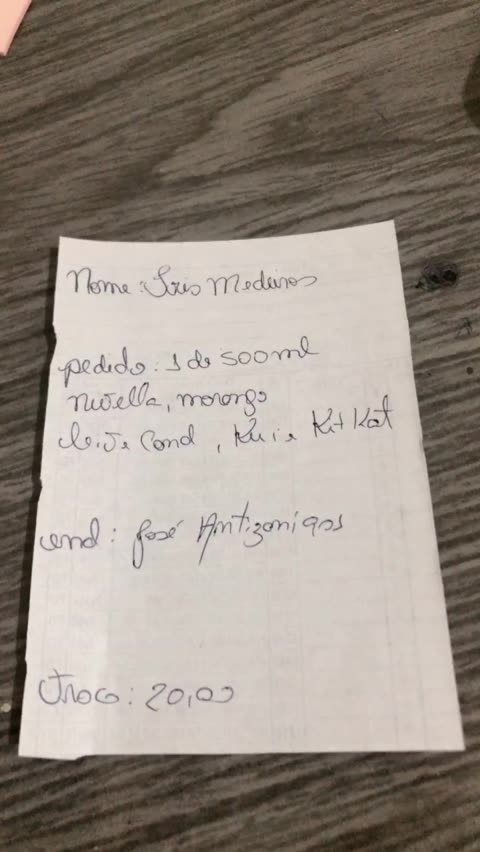 Nome: Iris Medeiros
pedido: 1 de 500ml
Nutella, morango
leite Cond, Kui e Kit Kat
end: José Antizonigos
Troco: 20,00